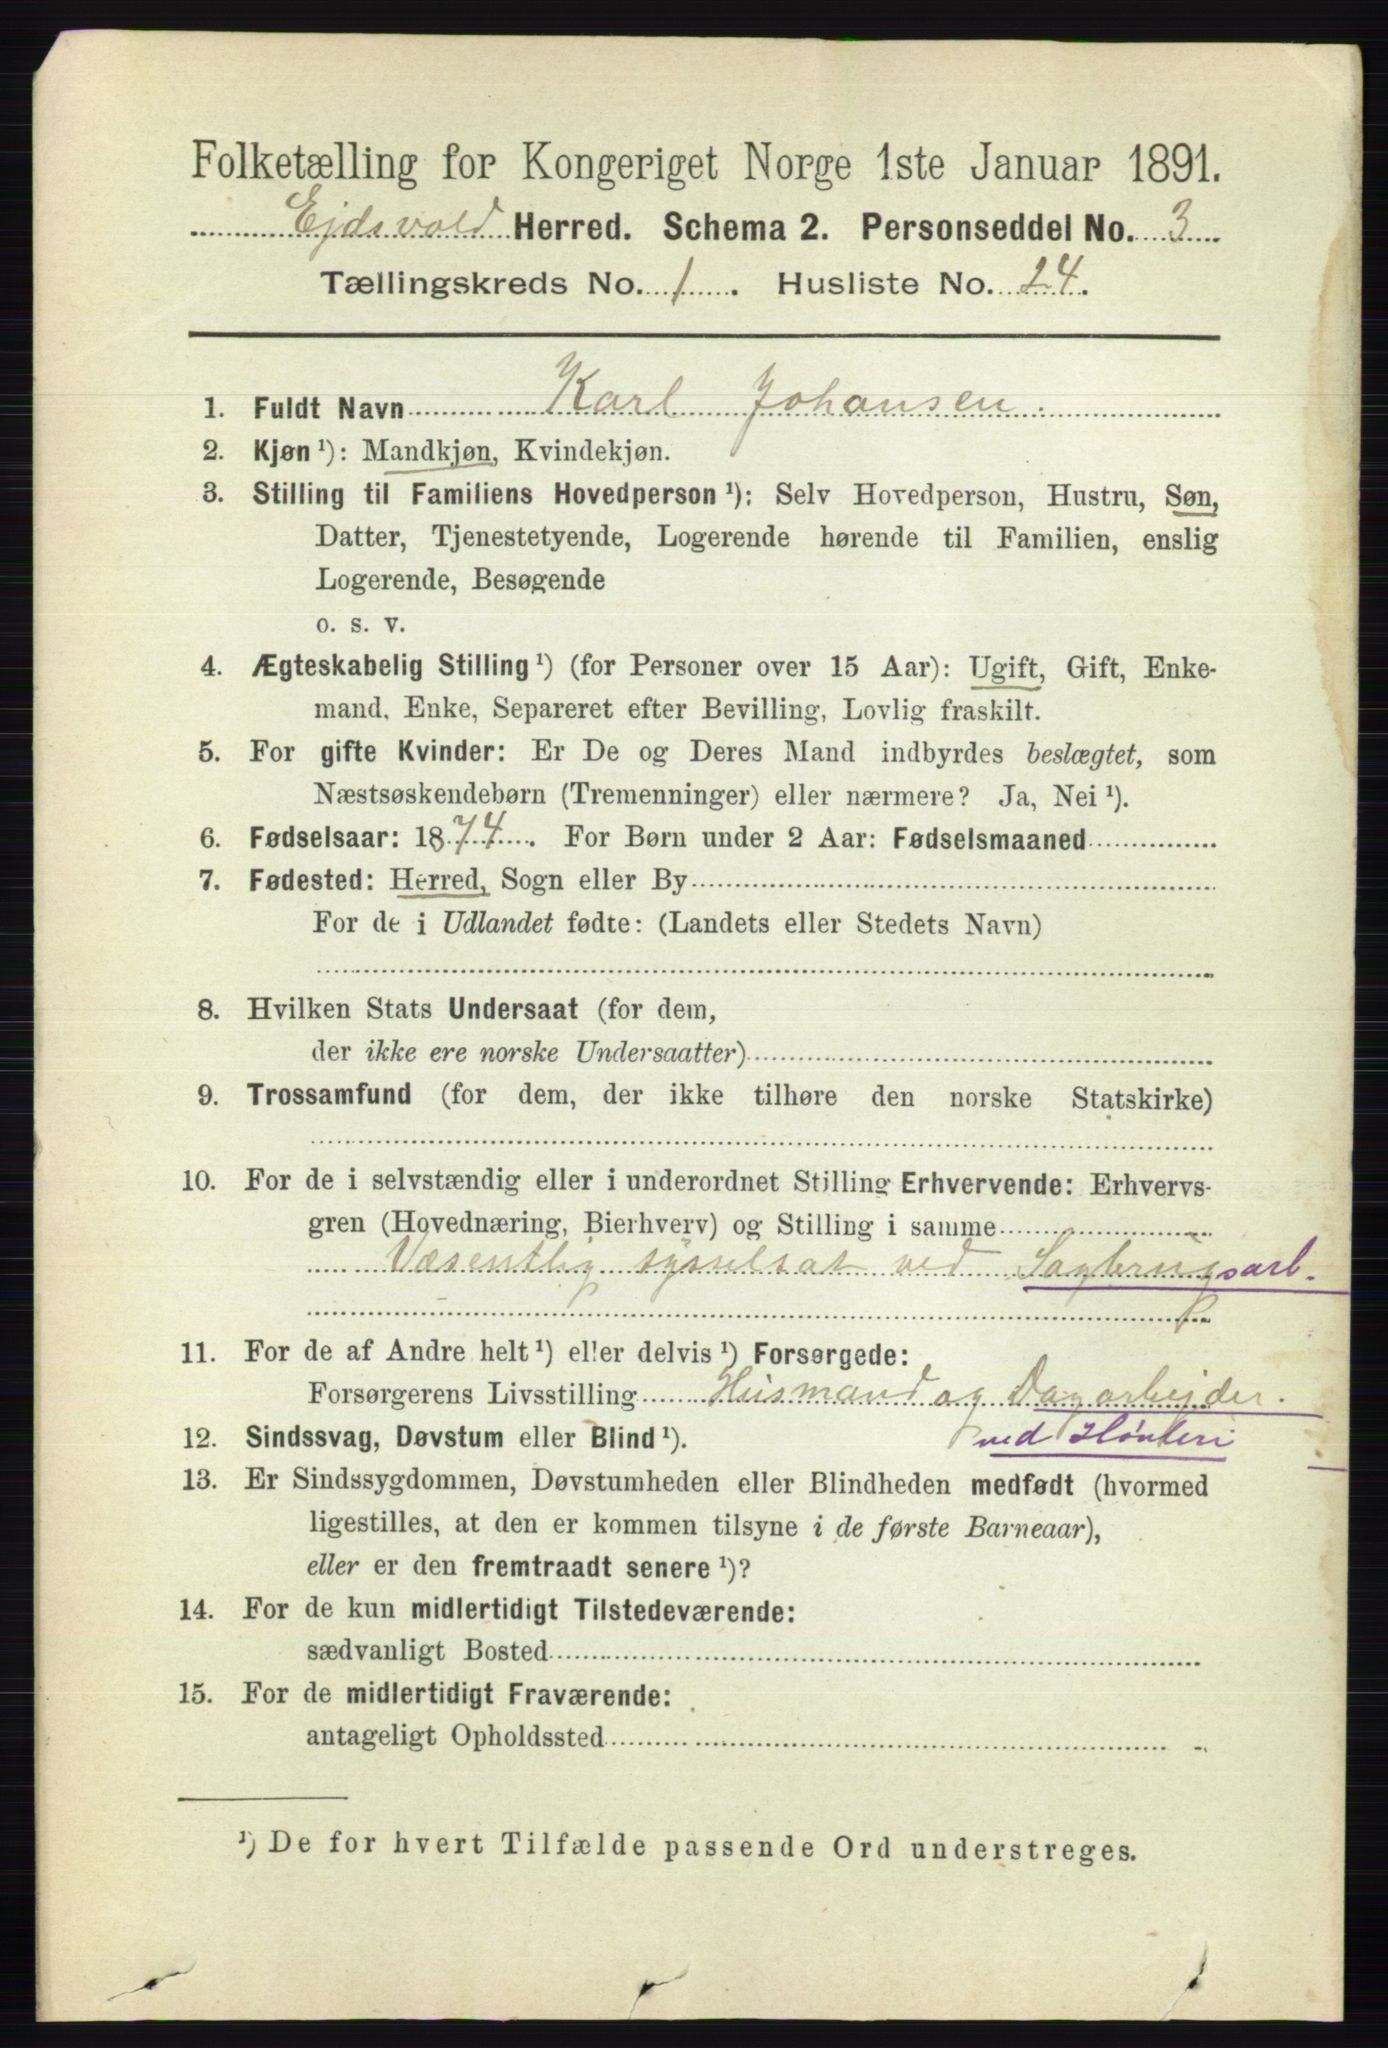 Folketælling for Kongeriget Norge 1ste Januar 1891.
Ejdsvold Herred. Schema 2. Personseddel No. 3
Tællingskreds No. 1. Husliste No. 24.
1. Fuldt Navn Karl Johansen.
2. Kjøn ¹): Mandkjøn, Kvindekjøn.
3. Stilling til Familiens Hovedperson ¹): Selv Hovedperson, Hustru, Søn,
Datter, Tjenestetyende, Logerende hørende til Familien, enslig
Logerende, Besøgende
o. s. v.
4. Ægteskabelig Stilling ¹) (for Personer over 15 Aar): Ugift, Gift, Enke-
mand, Enke, Separeret efter Bevilling, Lovlig fraskilt.
5. For gifte Kvinder: Er De og Deres Mand indbyrdes beslægtet, som
Næstsøskendebørn (Tremenninger) eller nærmere? Ja, Nei ¹).
6. Fødselsaar: 1874. For Børn under 2 Aar: Fødselsmaaned
7. Fødested: Herred, Sogn eller By
For de i Udlandet fødte: (Landets eller Stedets Navn)
8. Hvilken Stats Undersaat (for dem,
der ikke ere norske Undersaatter)
9. Trossamfund (for dem, der ikke tilhøre den norske Statskirke)
10. For de i selvstændig eller i underordnet Stilling Erhvervende: Erhvervs-
gren (Hovednæring, Bierhverv) og Stilling i samme
Væsentlig sysselsat ved Sagbrugsarb.
11. For de af Andre helt ¹) eller delvis ¹) Forsørgede:
Forsørgerens Livsstilling Husmand og Dagarbejder.
12. Sindssvag, Døvstum eller Blind ¹). ved
13. Er Sindssygdommen, Døvstumheden eller Blindheden medfødt (hvormed
ligestilles, at den er kommen tilsyne i de første Barneaar),
eller er den fremtraadt senere ¹)?
14. For de kun midlertidigt Tilstedeværende:
sædvanligt Bosted
15. For de midlertidigt Fraværende:
antageligt Opholdssted
¹) De for hvert Tilfælde passende Ord understreges.